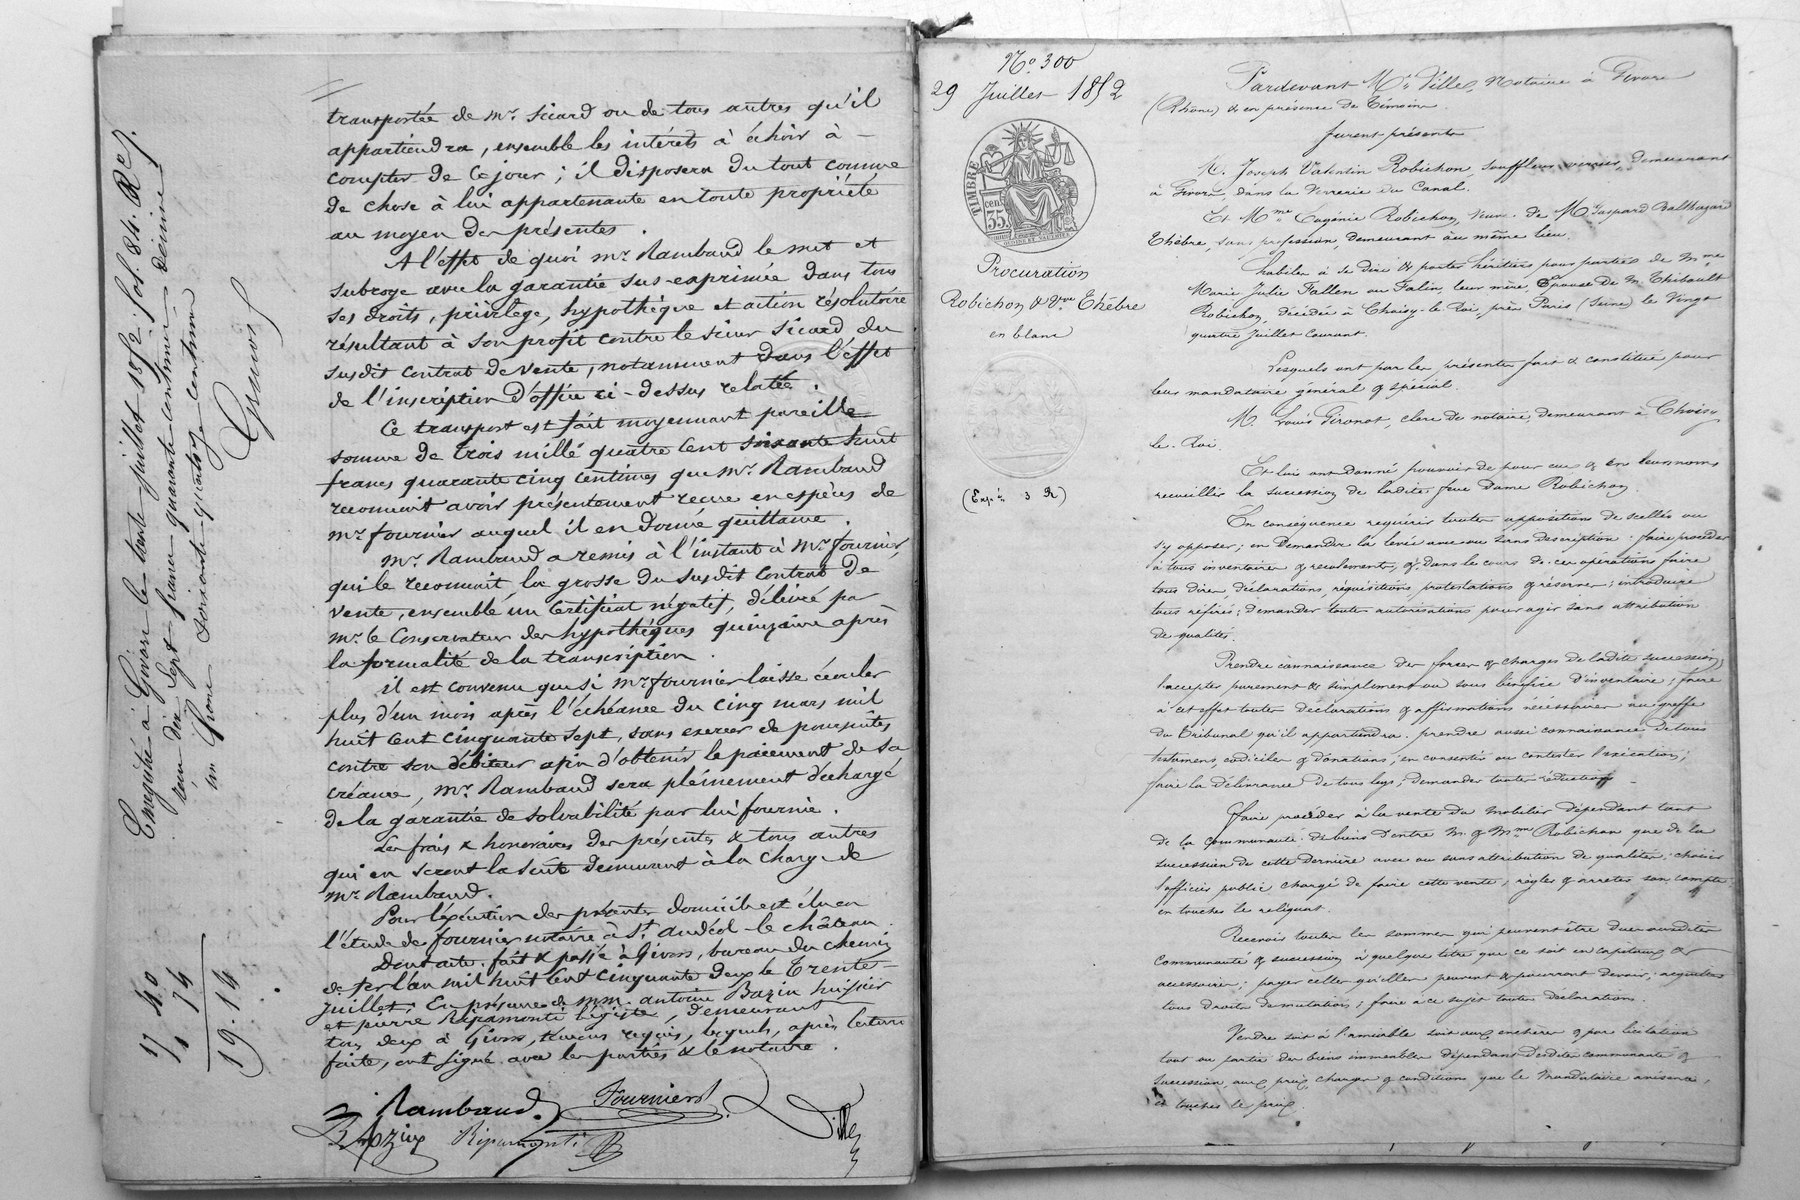 transportée de mr. Sicard ou de tous autres qu'il
appartiendra, ensemble les intérêts à échoir à -
compter de ce jour ; il disposera du tout comme
de chose à lui appartenante en toute propriété
au moyen des présentes.
A l'effet de quoi mr. Rambaud le met et
subroge avec la garantie sus-exprimée dans tous
ses droits, privilège, hypothèque et action résolutoire
résultant à son profit contre le sieur Sicard du
susdit contrat de vente, notamment dans l'effet
de l'inscription d'office ci-dessus relatée.
Ce transport est fait moyennant pareille
somme de trois mille quatre cent soixante huit
francs quarante cinq centimes que mr. Rambaud
reconnait avoir présentement reçue en espèces de
mr. fournier auquel il en donne quittance.
mr. Rambaud a remis à l'instant à mr. fournier,
qui le reconnait, la grosse du susdit contrat de
vente, ensemble un certificat négatif, délivré par
mr. le Conservateur des hypothèques quinzaine après
la formalité de la transcription.
il est convenu que si mr. fournier laisse écouler
plus d'un mois après l'échéance du cinq mars mil
huit cent cinquante sept, sans exercer de poursuites
contre son débiteur afin d'obtenir le paiement de sa
créance, mr. Rambaud sera pleinement déchargé
de la garantie de solvabilité par lui fournie.
Les frais & honoraires des présentes & tous autres
qui en seront la suite demeurent à la charge de
mr. Rambaud.
Pour l'exécution des présentes domicile est élu en
l'étude de fournier notaire à St. andéol-le château
Dont acte. fait & passé à Givors, bureau du chemin
de fer l'an mil huit cent cinquante deux le Trente -
juillet ; En présence de mm. antoine Bazin huissier
et pierre Ripamonti légiste, demeurant
tous deux à Givors, témoins requis, lesquels, après lecture
faite, ont signé avec les parties & le notaire.
Rambaud. Fourniert Ville
Bazin Ripamonti
Enregistré à Givors le trente juillet 1852. fol. 84. Re
reçu dix sept francs quarante centimes décime
un franc soixante quatorze centimes
17 40
1 74
19.14
No. 300
29 Juillet 1852
TIMBRE
35 cen
Procuration
Robichon & Vve. Thèbre
en blanc
Pardevant Me. Ville, Notaire à Givors
(Rhône) & en présence de Témoins
furent présents
M. Joseph Valentin Robichon, souffleur verrier, demeurant
à Givors, dans la Verrerie du Canal.
Et Mme Eugénie Robichon, veuve de M. Gaspard Balthazard
Thèbre, sans profession, demeurant au même lieu.
habiles à se dire & porter héritiers pour parties de Mme
Marie Julie Fallen ou Falin, leur mère Epouse de M. Thibault
Robichon, décédée à Choisy-le-Roi, près Paris (Seine) le Vingt
quatre Juillet courant.
Lesquels ont par les présentes fait & constitué pour
leur mandataire général & spécial.
M. Louis Gironot, clerc de notaire, demeurant à Choisy
le-Roi.
Et lui ont donné pouvoir de pour eux & en leurs noms
recueillir la succession de ladite feue Dame Robichon.
En conséquence requérir toutes appositions de scellés ou
s'y opposer ; en demander la levée avec ou sans description ; faire procéder
à tous inventaires & recolements, & dans le cours de ces opérations faire
tous dires, déclarations, réquisitions, protestations & réserves ; introduire
tous référés ; demander toutes autorisations pour agir sans attribution
de qualités.
Prendre connaissance des forces & charges de ladite succession,
l'accepter purement & simplement ou sous bénéfice d'inventaire ; faire
à cet effet toutes déclarations & affirmations nécessaires au greffe
du Tribunal qu'il appartiendra. prendre aussi connaissance de tous
testamens, codiciles & donations ; en consentir ou contester l'exécution ;
faire la délivrance de tous legs ; demander toutes réductions
faire procéder à la vente du mobilier dépendant tant
de la communauté de biens d'entre M. & Mme Robichon que de la
succession de cette dernière avec ou sans attribution de qualités ; choisir
l'officier public chargé de faire cette vente ; régler & arrêter son compte
en toucher le reliquat.
Recevoir toutes les sommes qui peuvent être dues auxdites
communauté & succession à quelque titre que ce soit en capitaux &
accessoires ; payer celles qu'elles peuvent & pourront devoir ; acquitter
tous droits de mutations ; faire à ce sujet toutes déclarations.
Vendre soit à l'amiable soit aux enchères & par licitation
tout ou partie des biens immeubles dépendant desdites communauté &
succession, aux prix, charges & conditions que le Mandataire avisera,
et toucher le prix.